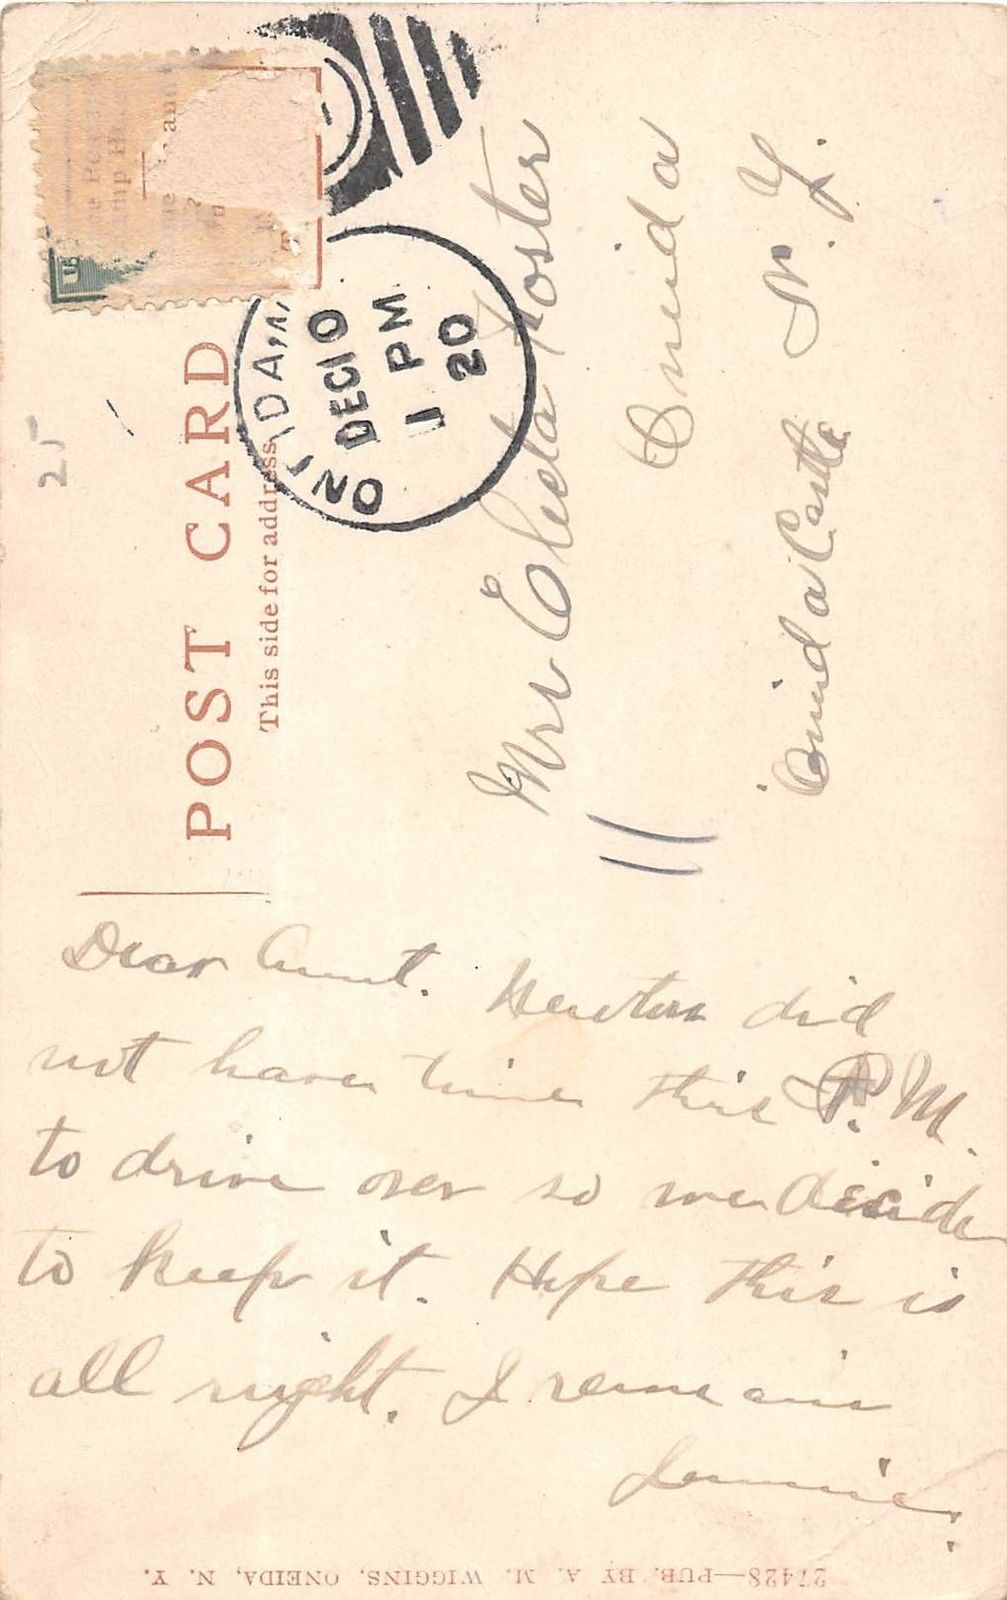 POST CARD
This side for address
ONEIDA, N
DEC 10
1 PM
20
25
Mrs Elida Foster
Oneida
N. Y.
Oneida Castle
11
Dear Aunt. Newton did
not have time this P. M.
to drive over so we decide
to keep it. Hope this is
all right. I remain
Jennie.
27428—PUB. BY A. M. WIGGINS, ONEIDA, N. Y.